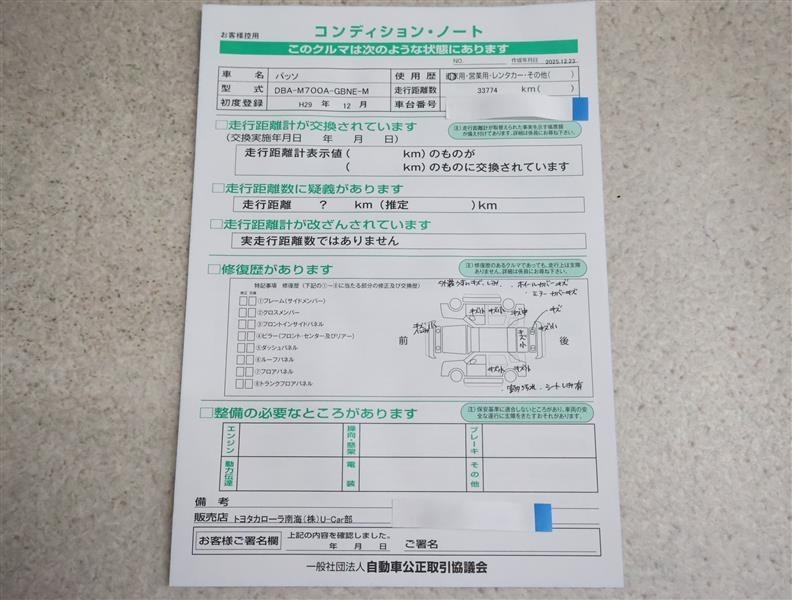 お客様控用
コンディション・ノート
このクルマは次のような状態にあります
NO. 作成年月日 2025.12.23
車名 パッソ 使用歴 自家用・営業用・レンタカー・その他( )
型式 DBA-M700A-GBNE-M 走行距離数 33774 km( )
初度登録 H29 年 12 月 車台番号
□走行距離計が交換されています
(交換実施年月日 年 月 日)
注)走行距離計が取替えられた事実を示す備票類
が備え付けてあります。詳細は係員にお尋ね下さい。
走行距離計表示値( km)のものが
( km)のものに交換されています
□走行距離数に疑義があります
走行距離 ? km(推定 )km
□走行距離計が改ざんされています
実走行距離数ではありません
□修復歴があります
注)修復歴のあるクルマであっても、走行上は支障
ありません。詳細は係員にお尋ね下さい。
特記事項 修復歴(下記の①~⑧に当たる部分の修正及び交換歴)
修正 交換
①フレーム(サイドメンバー)
②クロスメンバー
③フロントインサイドパネル
④ピラー(フロント・センター及びリアー)
⑤ダッシュパネル
⑥ルーフパネル
⑦フロアパネル
⑧トランクフロアパネル
前 後
キズ小 キズ小 キズ中
キズ
キズ小
キズ小
□整備の必要なところがあります
注)保安基準に適合しないところがあり、車両の安
全な運行に支障をきたすおそれがあります。
エンジン 操向・懸架 ブレーキ
動力伝達 電装 その他
備考
販売店 トヨタカローラ南海(株)U-Car部
お客様ご署名欄 上記の内容を確認しました。
年 月 日 ご署名
一般社団法人 自動車公正取引協議会